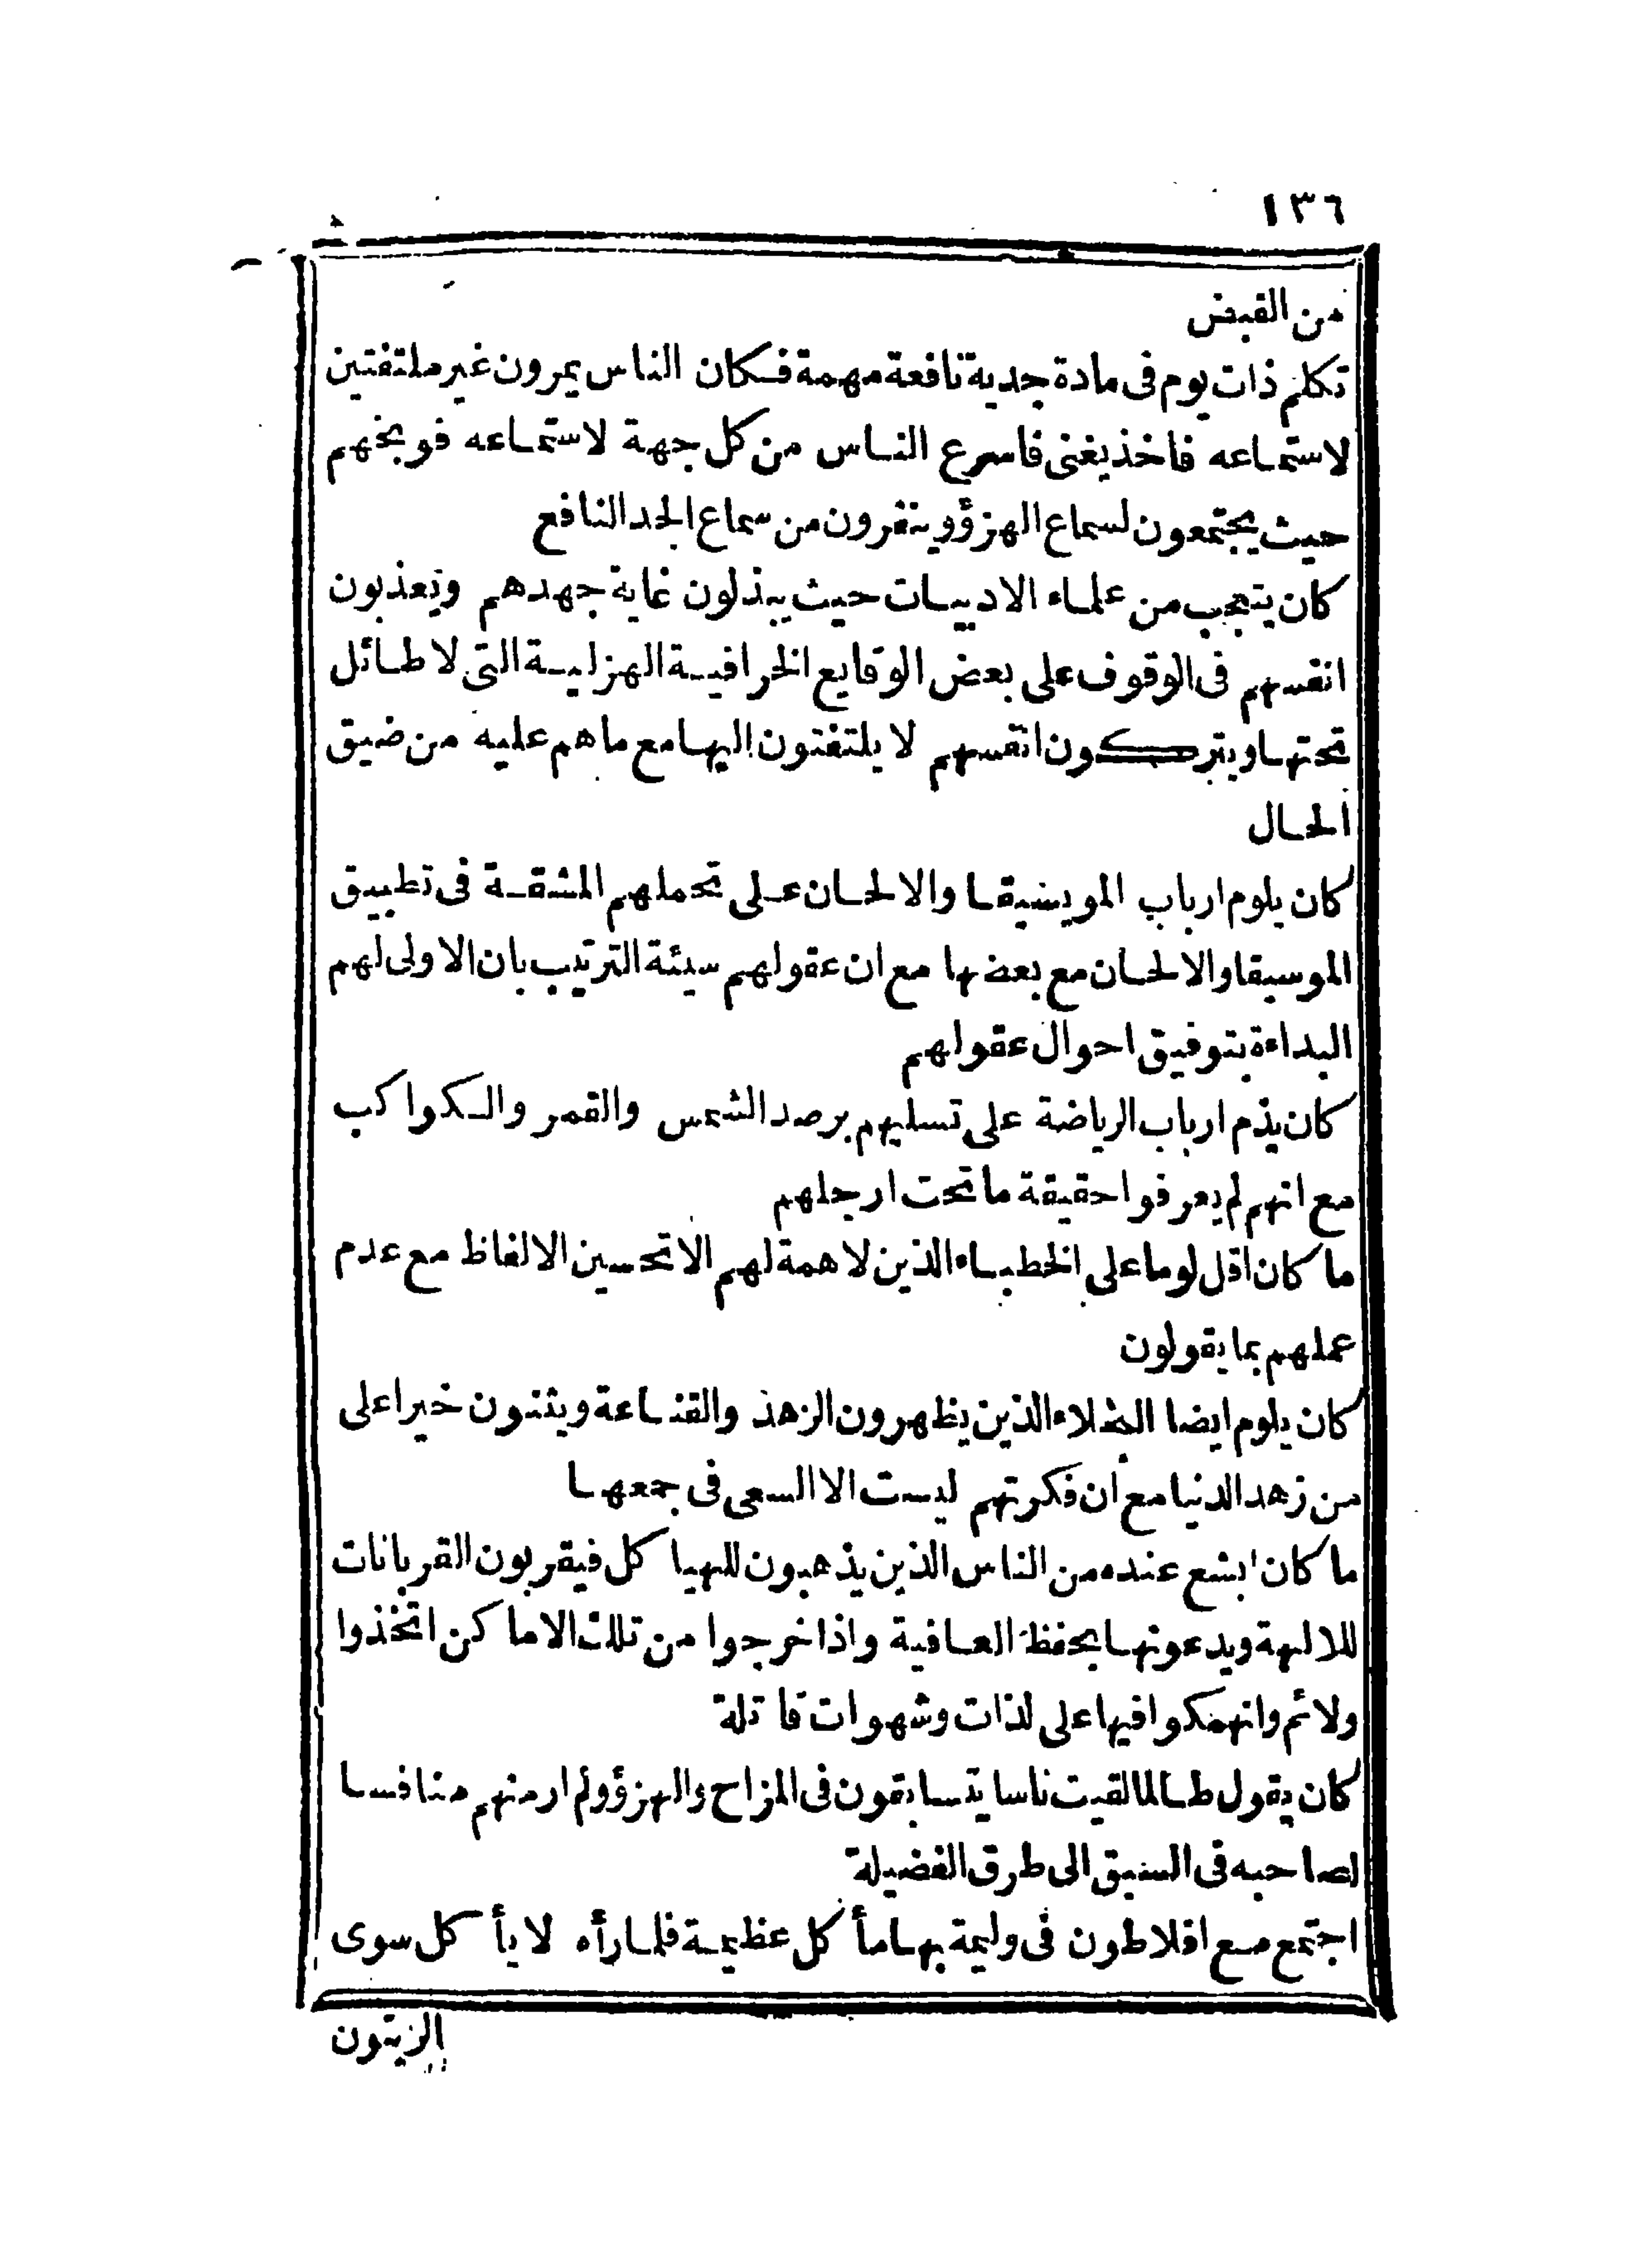 ١٣٦
من القبض
تكلم ذات يوم فى مادة جدية نافعة مهمة فكان الناس يمرون غير ملتفتين
لاستماعه فاخذ يغنى فاسرع الناس من كل جهة لاستماعه فوبخهم
حيث يجتمعون لسماع الهزؤ وينفرون من سماع الجد النافع
كان يتعجب من علماء الادبيات حيث يبذلون غاية جهدهم ويعذبون
انفسهم فى الوقوف على بعض الوقايع الخرافية الهزلية التى لا طائل
تحتها ويتركون انفسهم لا يلتفتون اليها مع ما هم عليه من ضيق
الحال
كان يلوم ارباب الموسيقا والالحان على تحملهم المشقة فى تطبيق
الموسيقا والالحان مع بعضها مع ان عقولهم سيئة الترتيب بان الاولى لهم
البداءة بتوفيق احوال عقولهم
كان يذم ارباب الرياضة على تسليهم برصد الشمس والقمر والكواكب
مع انهم لم يعرفوا حقيقة ما تحت ارجلهم
ما كان اقل لوما على الخطباء الذين لا همة لهم الا تحسين الالفاظ مع عدم
عملهم بما يقولون
كان يلوم ايضا البخلاء الذين يظهرون الزهد والقناعة ويثنون خيرا على
من زهد الدنيا مع ان فكرتهم ليست الا السعى فى جمعها
ما كان ابشع عنده من الناس الذين يذهبون للهياكل فيقربون القربانات
للالهة ويدعونها بحفظ العافية واذا خرجوا من تلك الاماكن اتخذوا
ولائم وانهمكوا فيها على لذات وشهوات قاتلة
كان يقول طالما لقيت ناسا يتسابقون فى المزاح والهزؤ ولم ار منهم منافسا
لصاحبه فى السبق الى طرق الفضيلة
اجتمع مع افلاطون فى وليمة بها مأكل عظيمة فلما رأه لا يأكل سوى
الزيتون